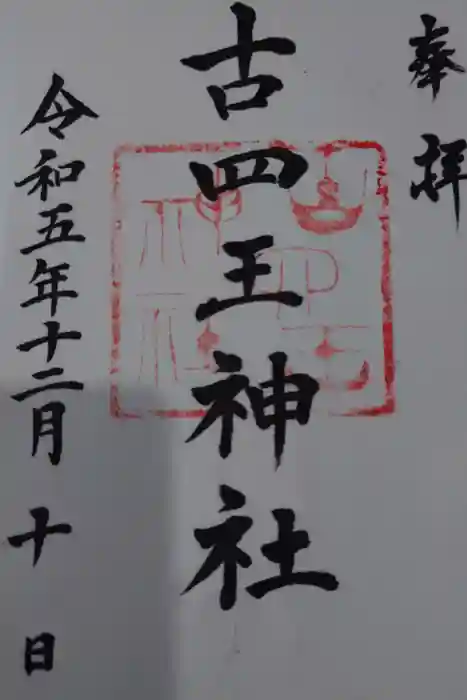 奉拝
古四王神社
令和五年十二月十日